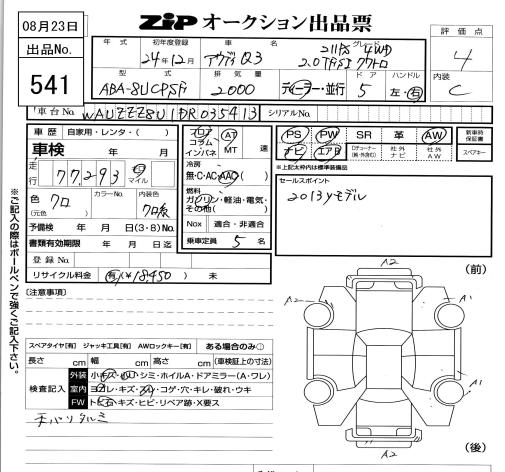 08月23日
ZIP オークション出品票
出品No.
541
年式 初年度登録 車名 グレード
24年12月 アウディ Q3 211PS 4WD
2.0TFSI クワトロ
評価点
4
型式 排気量 ドア ハンドル
ABA-8UCPSF 2000 ディーラー・並行 5 左・右
内装
C
車台No. WAUZZZ8U1DR035413 シリアルNo.
車歴 自家用・レンタ・( )
車検 年 月
フロア コラム インパネ AT MT 速
PS PW SR 革 AW 新車時保証書
ナビ エアB Dチューナー(純・外含む) 社外ナビ 社外AW スペアキー
※上記太枠内は標準装備品
走行 77,293 キロ マイル
冷房
無・C・AC・AAC( )
色 クロ (元色) カラーNo. 内装色 クロ
燃料
ガソリン・軽油・電気・その他( )
セールスポイント
2013yモデル
予備検 年 月 日(3・8)No.
書類有効期限 年 月 日迄
Nox 適合・非適合
登録No.
乗車定員 5 名
リサイクル料金 有(¥18,450) 未
〔注意事項〕
(前)
A2
A2 A1
スペアタイヤ[有] ジャッキ工具[有] AWロックキー[有] ある場合のみ○
長さ cm 幅 cm 高さ cm (車検証上の寸法)
検査記入
外装 小キズ・小凹・シミ・ホイルA・ドアミラー(A・ワレ)
室内 ヨゴレ・キズ・スレ・コゲ・穴・キレ・破れ・ウキ
FW トビ石・キズ・ヒビ・リペア跡・X要ス
天バリタルミ
A2 A1
A2
(後)
※ご記入の際はボールペンで強くご記入下さい。